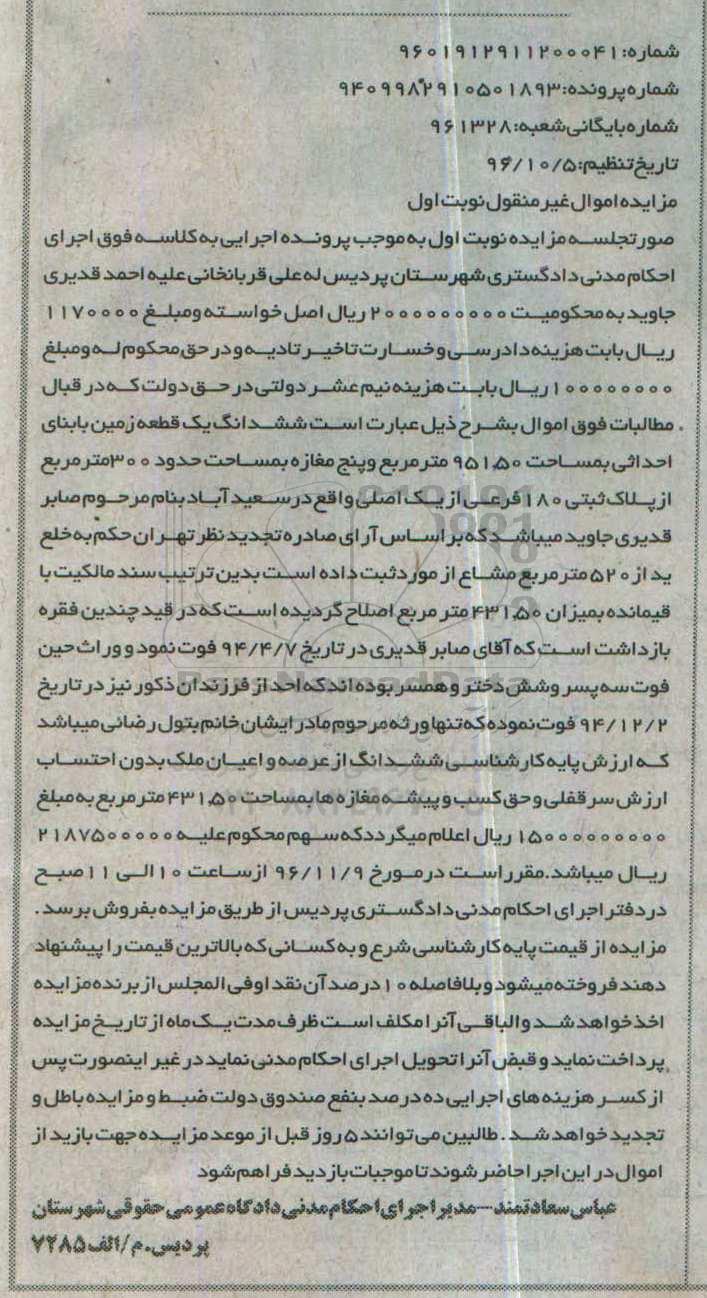 شماره: ۹۶۰۱۹۱۲۹۱۱۲۰۰۰۴۱
شماره پرونده: ۹۴۰۹۹۸۲۹۱۰۵۰۱۸۹۳
شماره بایگانی شعبه: ۹۶۱۳۲۸
تاریخ تنظیم: ۹۶/۱۰/۵
مزایده اموال غیر منقول نوبت اول
صورتجلسه مزایده نوبت اول به موجب پرونده اجرایی به کلاسه فوق اجرای
احکام مدنی دادگستری شهرستان پردیس له علی قربانخانی علیه احمد قدیری
جاوید به محکومیت ۲۰۰۰۰۰۰۰۰۰ ریال اصل خواسته ومبلغ ۱۱۷۰۰۰۰
ریال بابت هزینه دادرسی و خسارت تاخیر تادیه و در حق محکوم له ومبلغ
۱۰۰۰۰۰۰۰۰ ریال بابت هزینه نیم عشر دولتی در حق دولت که در قبال
مطالبات فوق اموال بشرح ذیل عبارت است ششدانگ یک قطعه زمین بابنای
احداثی بمساحت ۹۵۱,۵۰ متر مربع و پنج مغازه بمساحت حدود ۳۰۰متر مربع
از پلاک ثبتی ۱۸۰ فرعی از یک اصلی واقع در سعید آباد بنام مرحوم صابر
قدیری جاوید میباشد که بر اساس آرای صادره تجدید نظر تهران حکم به خلع
ید از ۵۲۰ متر مربع مشاع از مورد ثبت داده است بدین ترتیب سند مالکیت با
قیمانده بمیزان ۴۳۱,۵۰ متر مربع اصلاح گردیده است که در قید چندین فقره
بازداشت است که آقای صابر قدیری در تاریخ ۹۴/۴/۷ فوت نمود و وراث حین
فوت سه پسر وشش دختر و همسر بوده اند که احد از فرزندان ذکور نیز در تاریخ
۹۴/۱۲/۲ فوت نموده که تنها ورثه مرحوم مادر ایشان خانم بتول رضائی میباشد
که ارزش پایه کارشناسی ششدانگ از عرصه و اعیان ملک بدون احتساب
ارزش سرقفلی و حق کسب و پیشه مغازه ها بمساحت ۴۳۱,۵۰ متر مربع به مبلغ
۱۵۰۰۰۰۰۰۰۰۰ ریال اعلام میگردد که سهم محکوم علیه ۲۱۸۷۵۰۰۰۰۰
ریال میباشد. مقرر است در مورخ ۹۶/۱۱/۹ از ساعت ۱۰ الی ۱۱ صبح
در دفتر اجرای احکام مدنی دادگستری پردیس از طریق مزایده بفروش برسد.
مزایده از قیمت پایه کارشناسی شرع و به کسانی که بالاترین قیمت را پیشنهاد
دهند فروخته میشود و بلافاصله ۱۰ درصد آن نقدا وفی المجلس از برنده مزایده
اخذ خواهد شد والباقی آنرا مکلف است ظرف مدت یک ماه از تاریخ مزایده
پرداخت نماید و قبض آنرا تحویل اجرای احکام مدنی نماید در غیر اینصورت پس
از کسر هزینه های اجرایی ده درصد بنفع صندوق دولت ضبط و مزایده باطل و
تجدید خواهد شد. طالبین می توانند ۵ روز قبل از موعد مزایده جهت بازدید از
اموال در این اجرا حاضر شوند تا موجبات بازدید فراهم شود
عباس سعادتمند---مدیر اجرای احکام مدنی دادگاه عمومی حقوقی شهرستان
پردیس.م/الف ۷۲۸۵
ParsNamadData